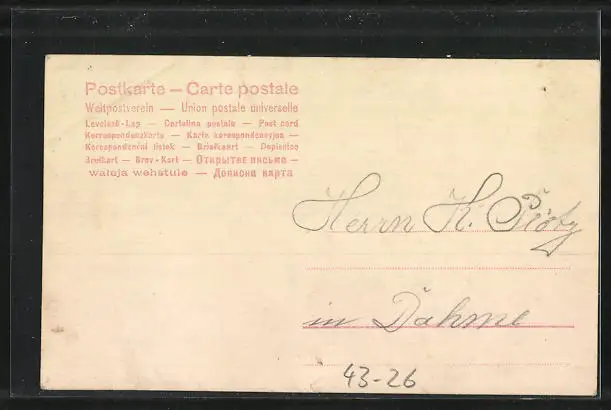 Postkarte — Carte postale
Weltpostverein — Union postale universelle
Levelezö-Lap — Cartolina postale — Post card
Korrespondenzkarte — Karta korespondencyjna —
Korespondenční lístek — Briefkaart — Dopisnica
Brefkort — Brev-Kort — Открытве письмо —
waleja wehstule — Дописна карта
Herrn K.
in Dahme
43-26